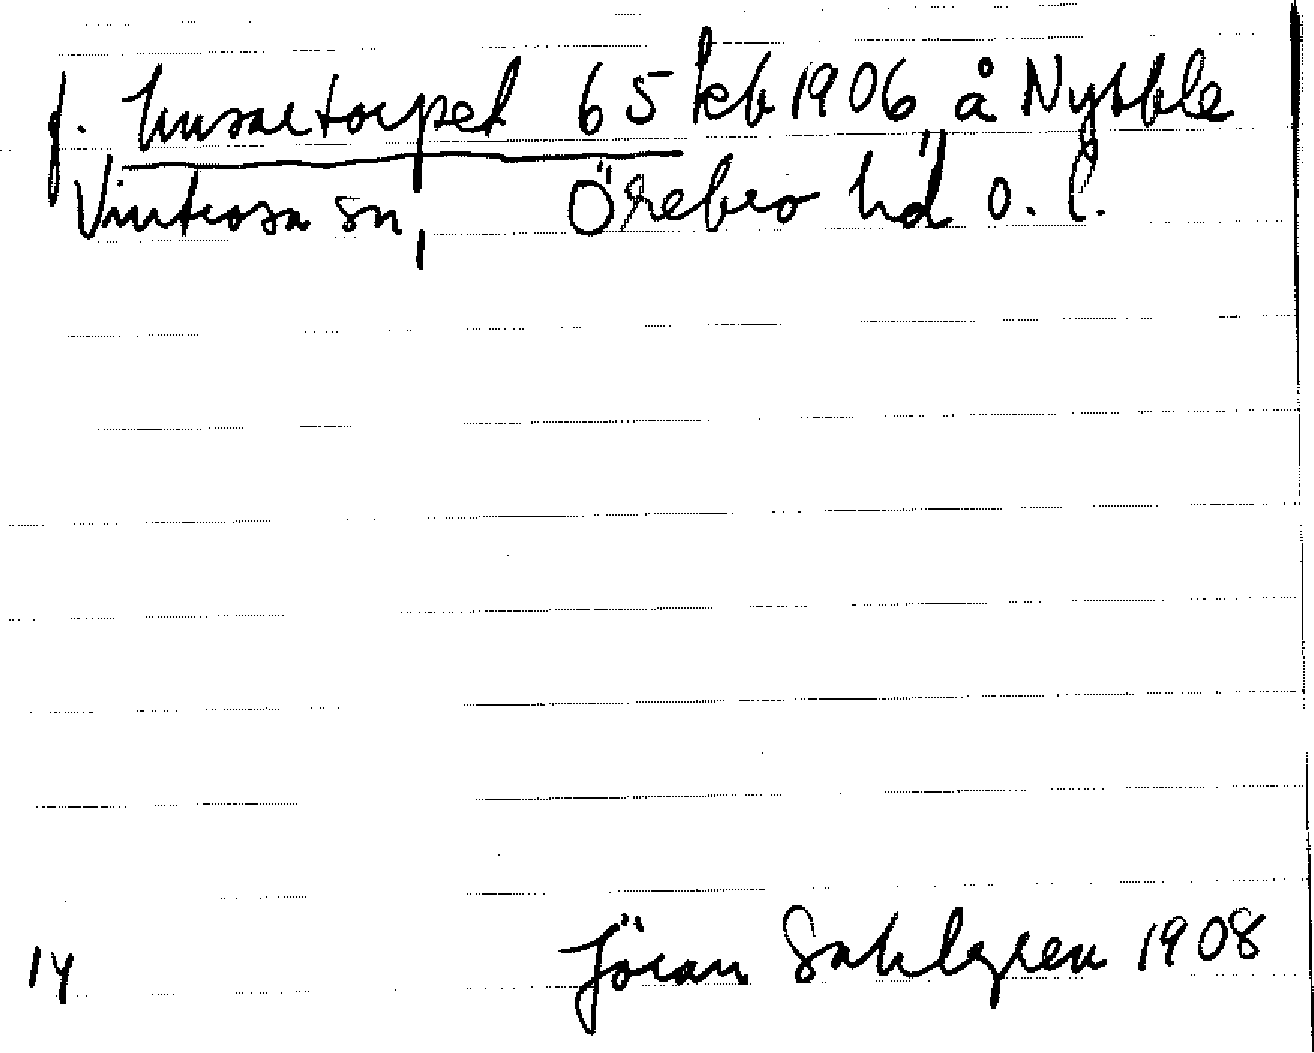 f. husartorpet 65 kb 1906, å Nybble
Vintrosa sn, Örebro hd ö. l.
14 Jöran Sahlgren 1908